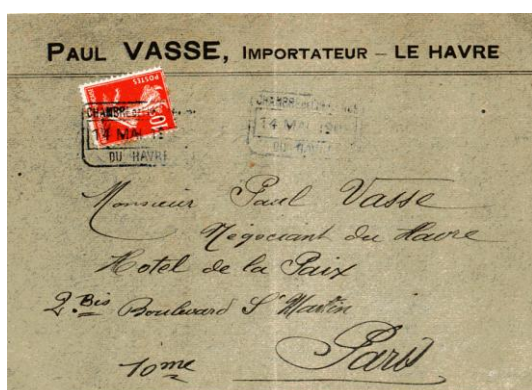 PAUL VASSE, IMPORTATEUR – LE HAVRE
POSTES
10
CHAMBRE
14 MAI 19
DU HAVRE
CHAMBRE
14 MAI 19
DU HAVRE
Monsieur Paul Vasse
Négociant du Havre
Hotel de la Paix
2.Bis Boulevard St Martin
Paris
10me